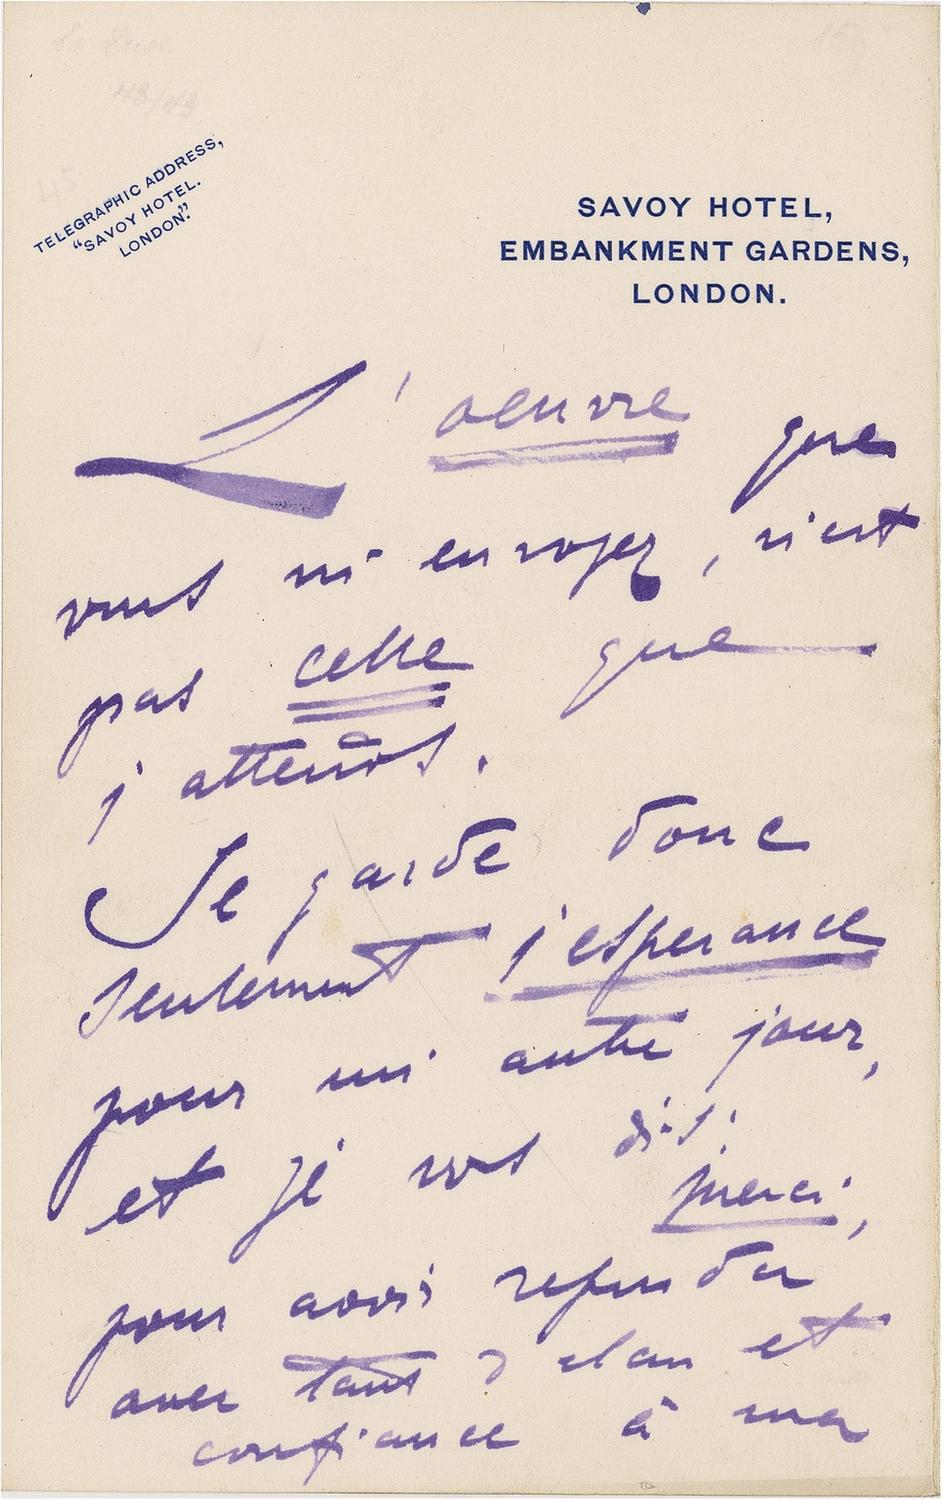 TELEGRAPHIC ADDRESS,
"SAVOY HOTEL.
LONDON."
SAVOY HOTEL,
EMBANKMENT GARDENS,
LONDON.
L'oeuvre que
vous m'envoyez, n'est
pas celle que
j'attends.
Je garde donc
seulement l'esperance
pour un autre jour,
et je vous dis:
merci,
pour avoir repondu
avec tant d'elan et
confiance à ma